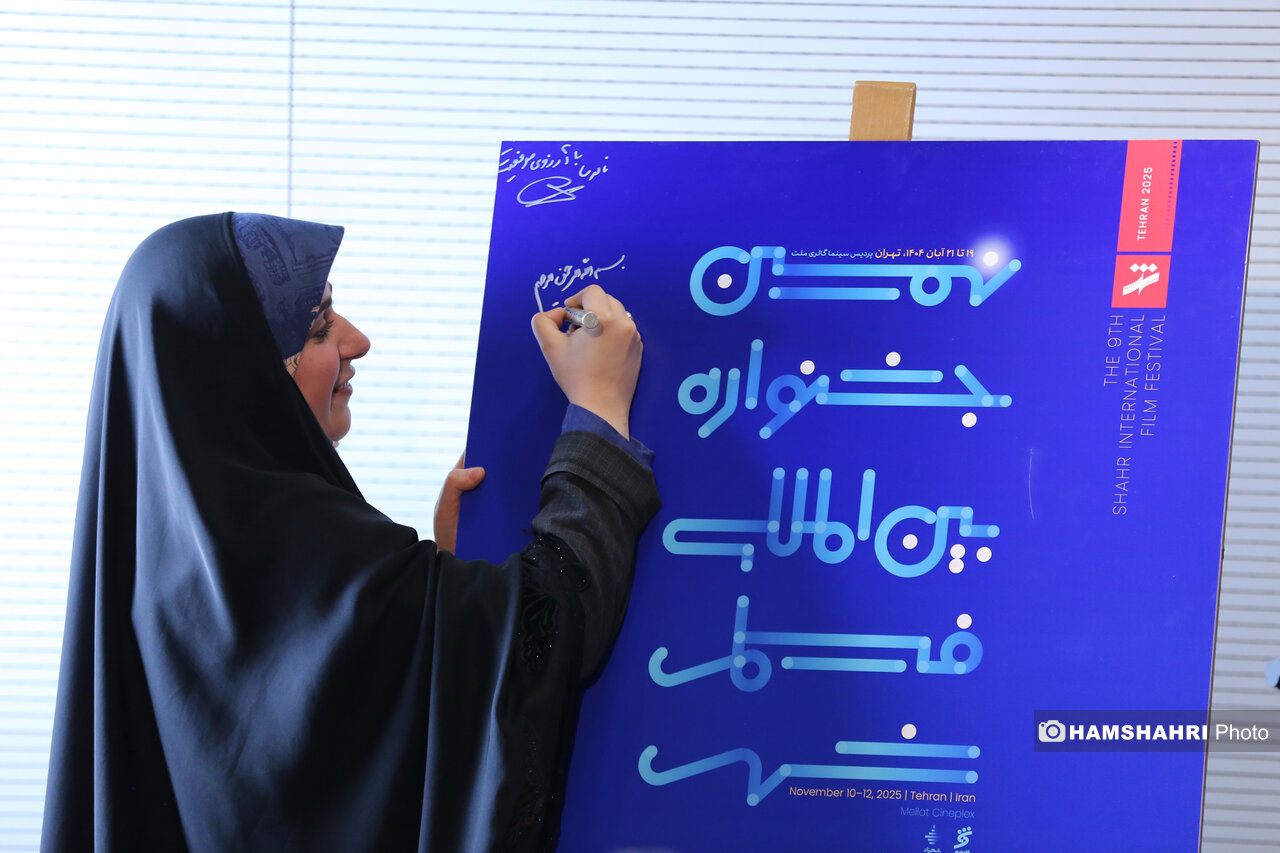 با آرزوی موفقیت
بسم الله الرحمن الرحیم
۱۹ تا ۲۱ آبان ۱۴۰۴، تهران پردیس سینما گالری ملت
نهمین
جشنواره
بین‌المللی
فیلم
شهر
TEHRAN 2025
شهر
THE 9TH
SHAHR INTERNATIONAL
FILM FESTIVAL
November 10–12, 2025 | Tehran | Iran
Mellat Cineplex
HAMSHAHRI Photo